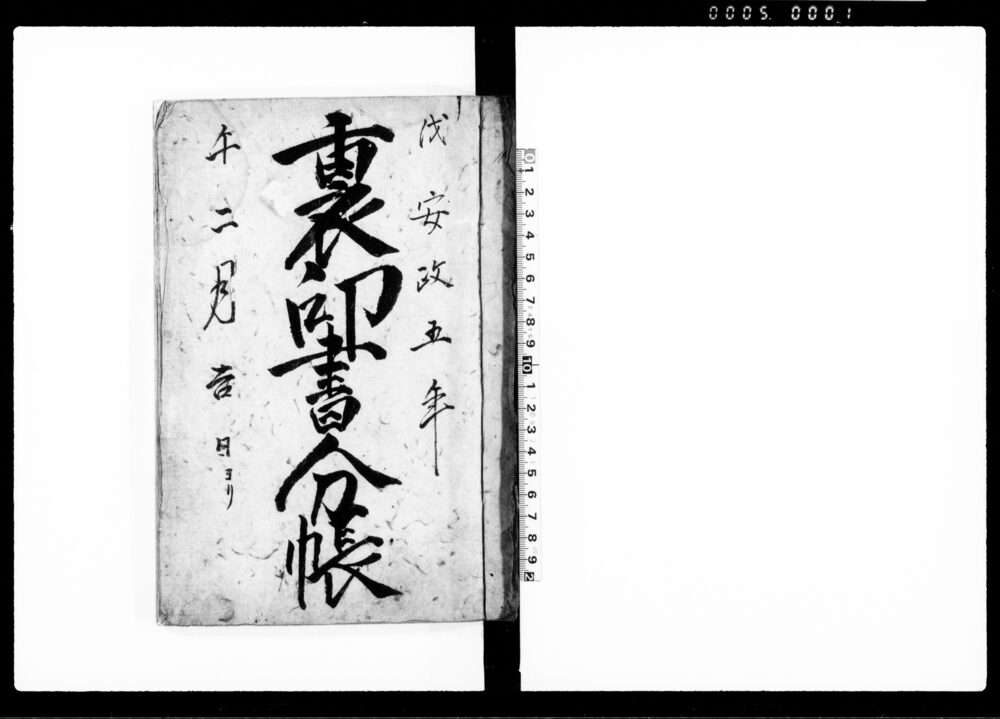 0005. 0001
戊 安政五年
裏印書分帳
午二月吉日ヨリ
0 1 2 3 4 5 6 7 8 9 10 1 2 3 4 5 6 7 8 9 2